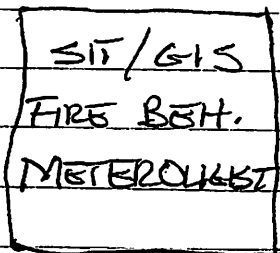 SIT/GIS
FIRE BEH.
METEROLIGIST